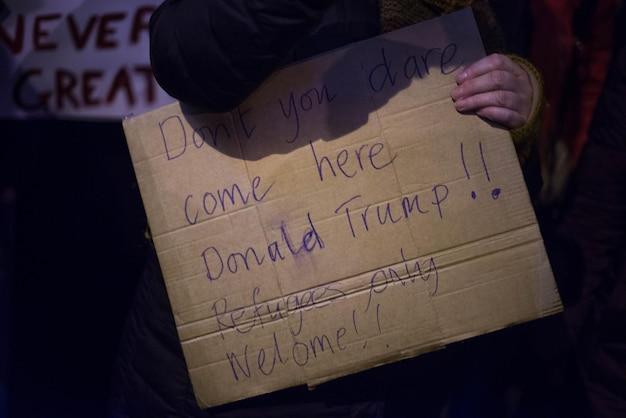 NEVER
GREAT
Don't you dare
come here
Donald Trump!!
Refugees only
Welome!!